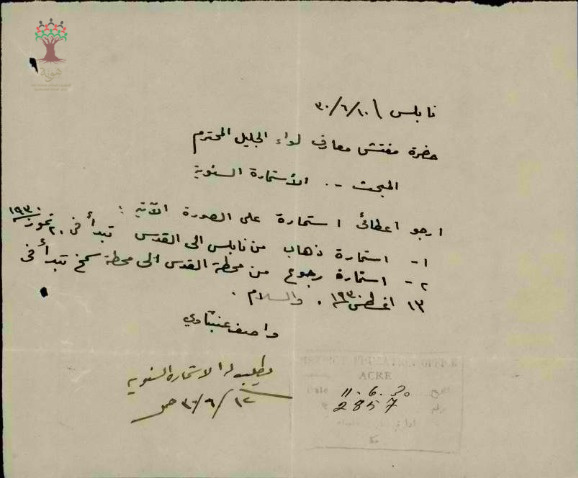 نابلس ١٠/٦/٣٠
حضرة مفتش معارف لواء الجليل المحترم
المبحث -.. الأستمارة السنوية
ارجو اعطائي استمارة على الصورة الآتية :
١- استمارة ذهاب من نابلس الى القدس تبدأ في ٢٠ تموز ١٩٣٠
٢- استمارة رجوع من محطة القدس الى محطة سمخ تبدأ في
١٣ اغسطس ١٩٣٠ . والسلام .
واصف عنبتاوي
يطلب له الاستمارة السنوية
١٢/٦/٣٠
ACRE
11.6.30
2857